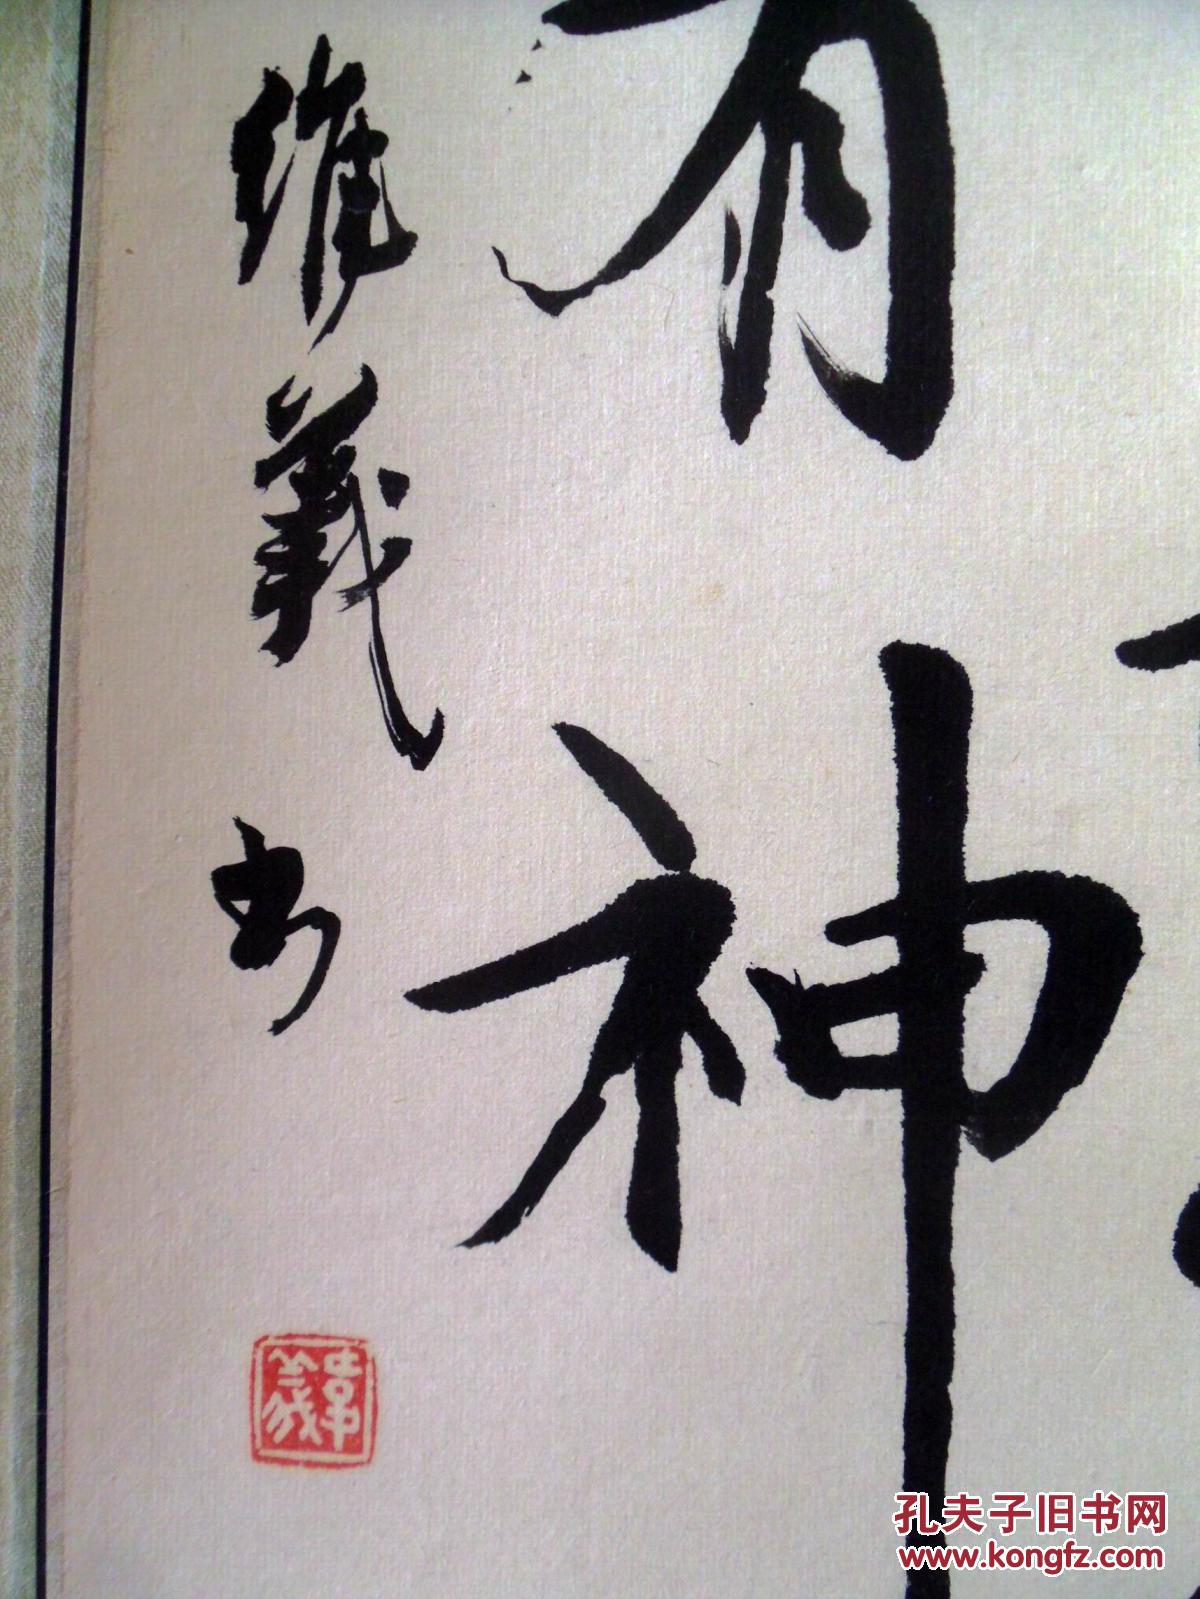 有神
維義書
孔夫子旧书网
www.kongfz.com